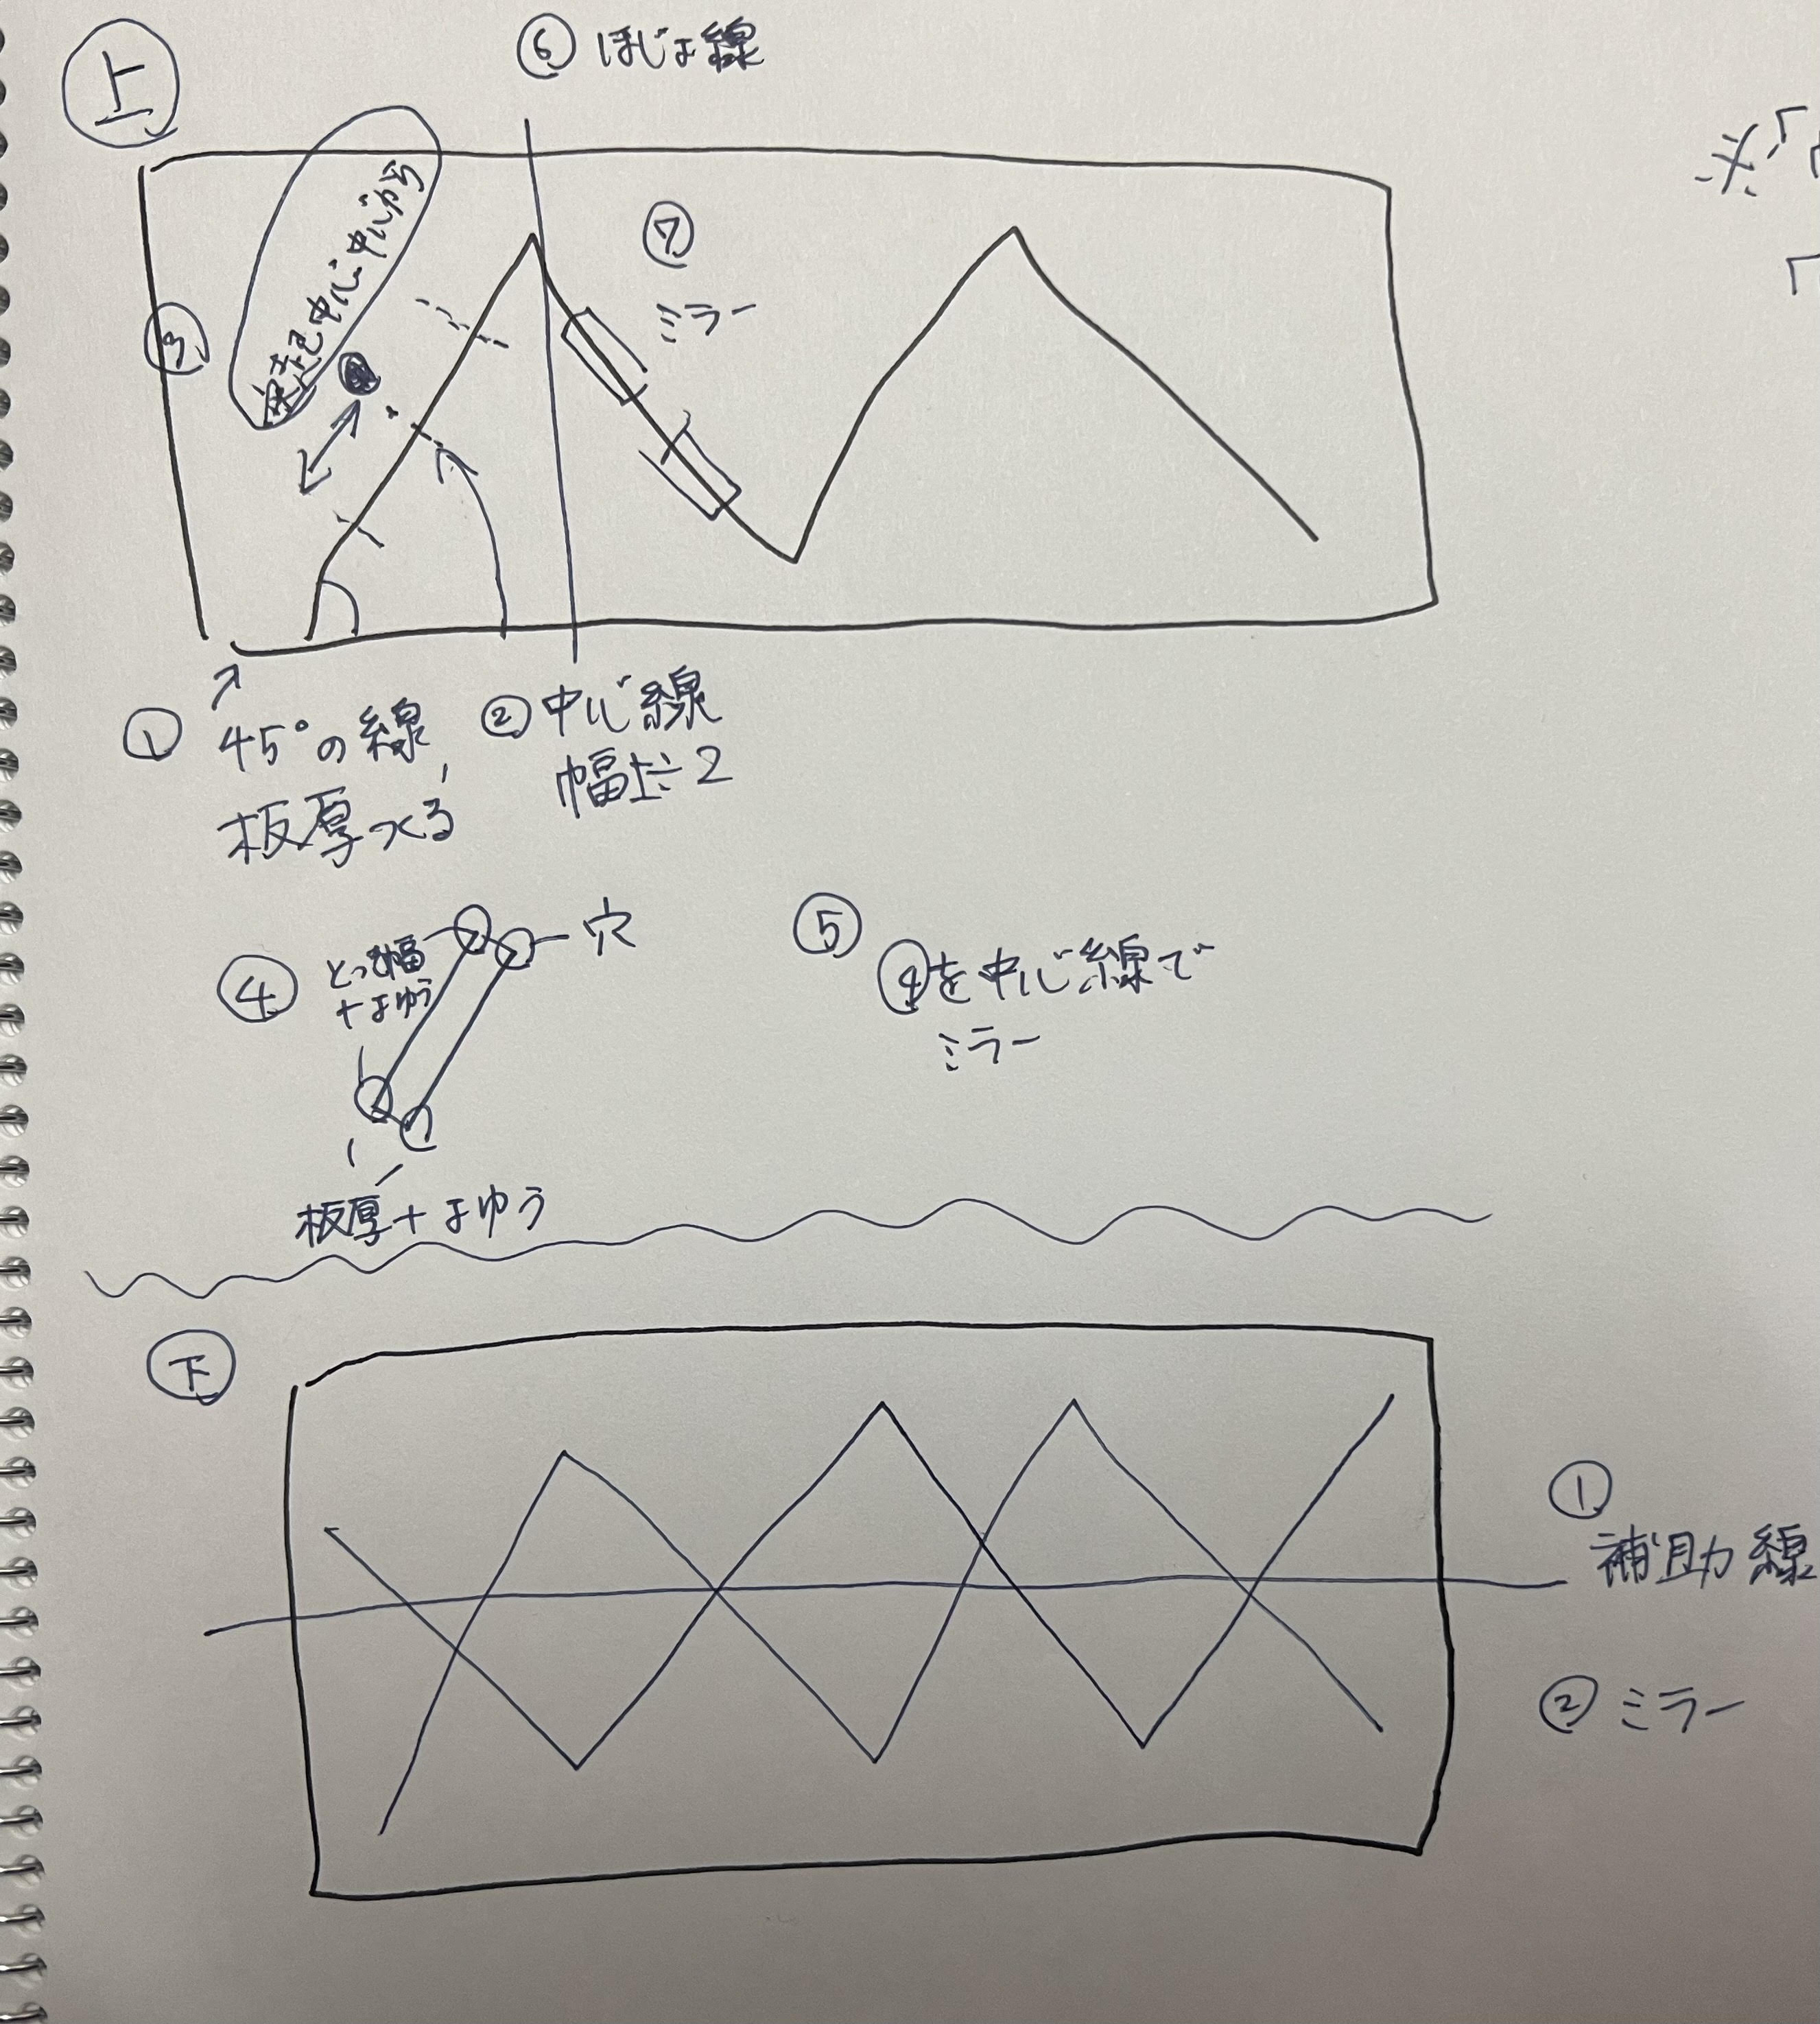 上
⑥ ほじょ線
③
突起中心中心から
⑦
ミラー
※「
「
① 45°の線
板厚つくる
② 中心線
幅±÷2
④ とっき幅
+よゆう
穴
板厚+よゆう
⑤
④を中心線で
ミラー
下
①
補助線
② ミラー